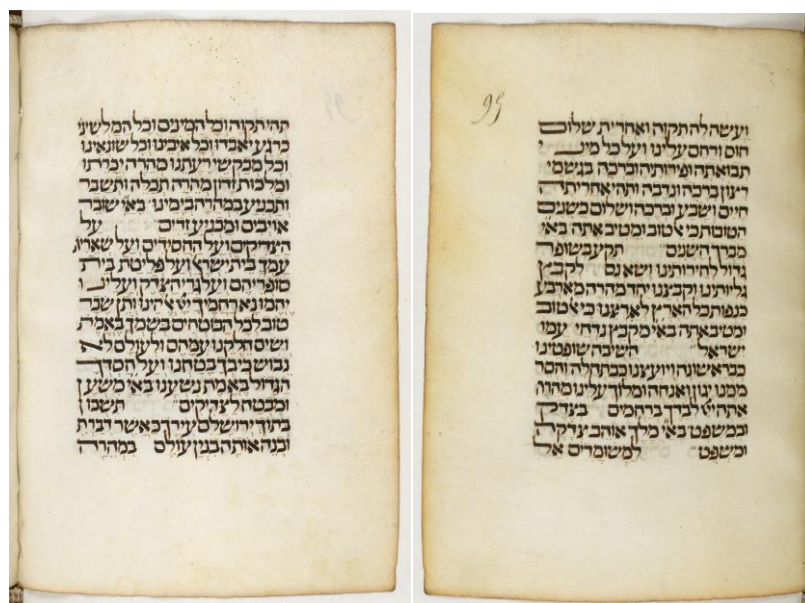 95
ועשה לה תקוה ואחרית שלום
חוס ורחם עלינו ועל כל מיני
תבואתה ופירותיה וברכה בגשמי
רצון ברכה ונדבה ותהי אחריתה
חיים ושבע וברכה ושלום כשנים
הטובות כי אל טוב ומטיב אתה בא״י
מברך השנים תקע בשופר
גדול לחירותינו ושא נס לקבץ
גליותינו וקבצנו יחד מהרה מארבע
כנפות כל הארץ לארצנו כי אל טוב
ומטיב אתה בא״י מקבץ נדחי עמו
ישראל השיבה שופטינו
כבראשונה ויועצנו כבתחלה והסר
ממנו יגון ואנחה ומלוך עלינו מהרה
אתה יי׳ לבדך ברחמים בצדק
ובמשפט בא״י מלך אוהב צדקה
ומשפט למשומדים אל
תהי תקוה וכל המינים וכל המלשיני
כרגע יאבדו וכל אויבינו וכל שונאינו
וכל מבקשי רעתנו מהרה יכרתו
ומלכות זדון מהרה תכלה ותשבר
ותכניע במהרה בימינו בא״י שובר
אוייבים ומכניע זדים על
הצדיקים ועל החסידים ועל שארית
עמך בית ישראל ועל פליטת בית
סופריהם ועל גרי הצדק ועלינו
יהמו נא רחמיך יי׳ אלהינו ותן שכר
טוב לכל הבוטחים בשמך באמת
ושים חלקנו עמהם ולעולם לא
נבוש כי בך בטחנו ועל חסדך
הגדול באמת נשענו בא״י משען
ומבטח לצדיקים תשכון
בתוך ירושלם עירך כאשר דברת
ובנה אותה בנין עולם במהרה